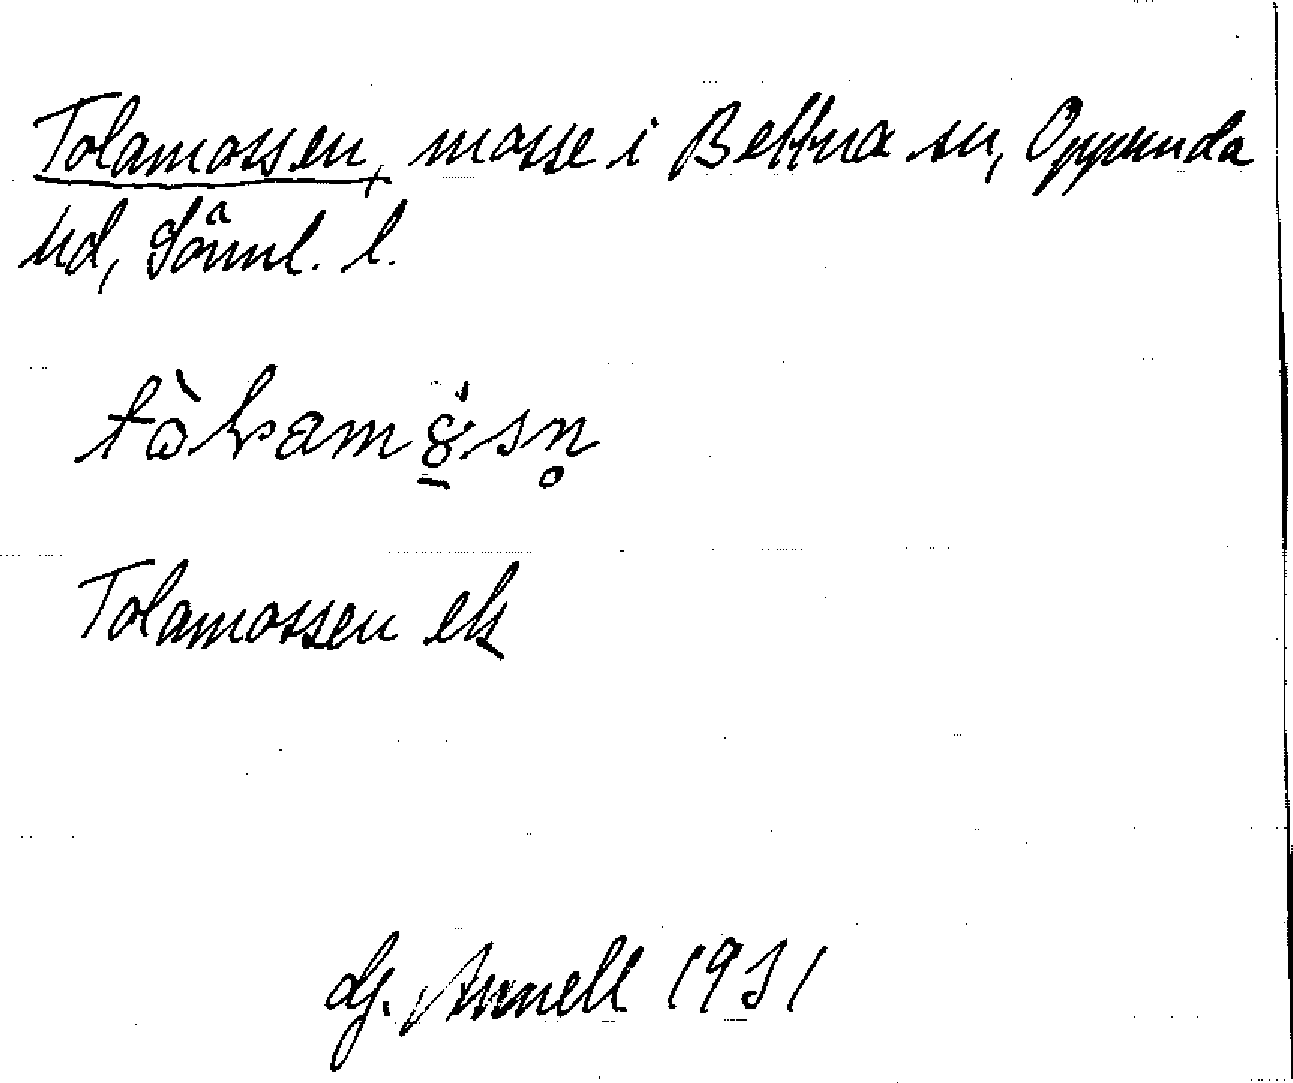 Tolamossen, mosse i Bettna sn, Oppunda
hd, Söml. l.
Tolamossen ek
G. Annell 1931